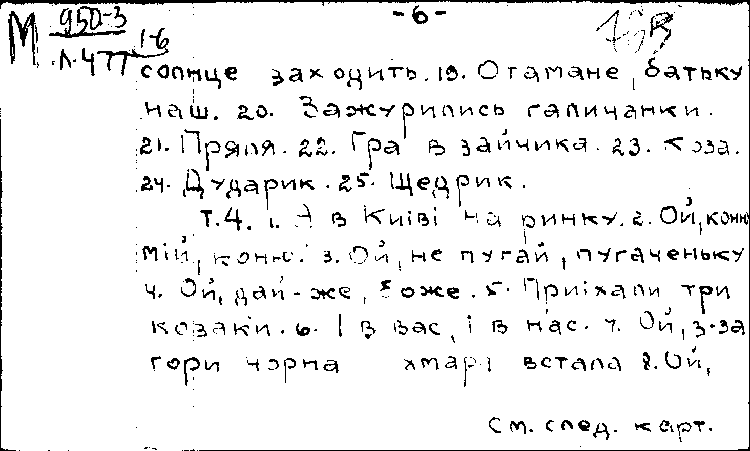 М 950-3
л.477 1-6
-6-
солнце заходить. 19. Отамане, батьку
наш. 20. Зажурились галичанки.
21. Пряля. 22. Гра в зайчика. 23. Коза.
24. Дударик. 25. Щедрик.
Т.4. 1. А в Киiвi на ринку. 2. Ой, коню
мiй, коню. 3. Ой, не пугай, пугаченьку
4. Ой, дай-же, Боже. 5. Приiхали три
козаки. 6. I в вас, i в нас. 7. Ой, з-за
гори чорна хмара встала 8. Ой,
См. след. карт.